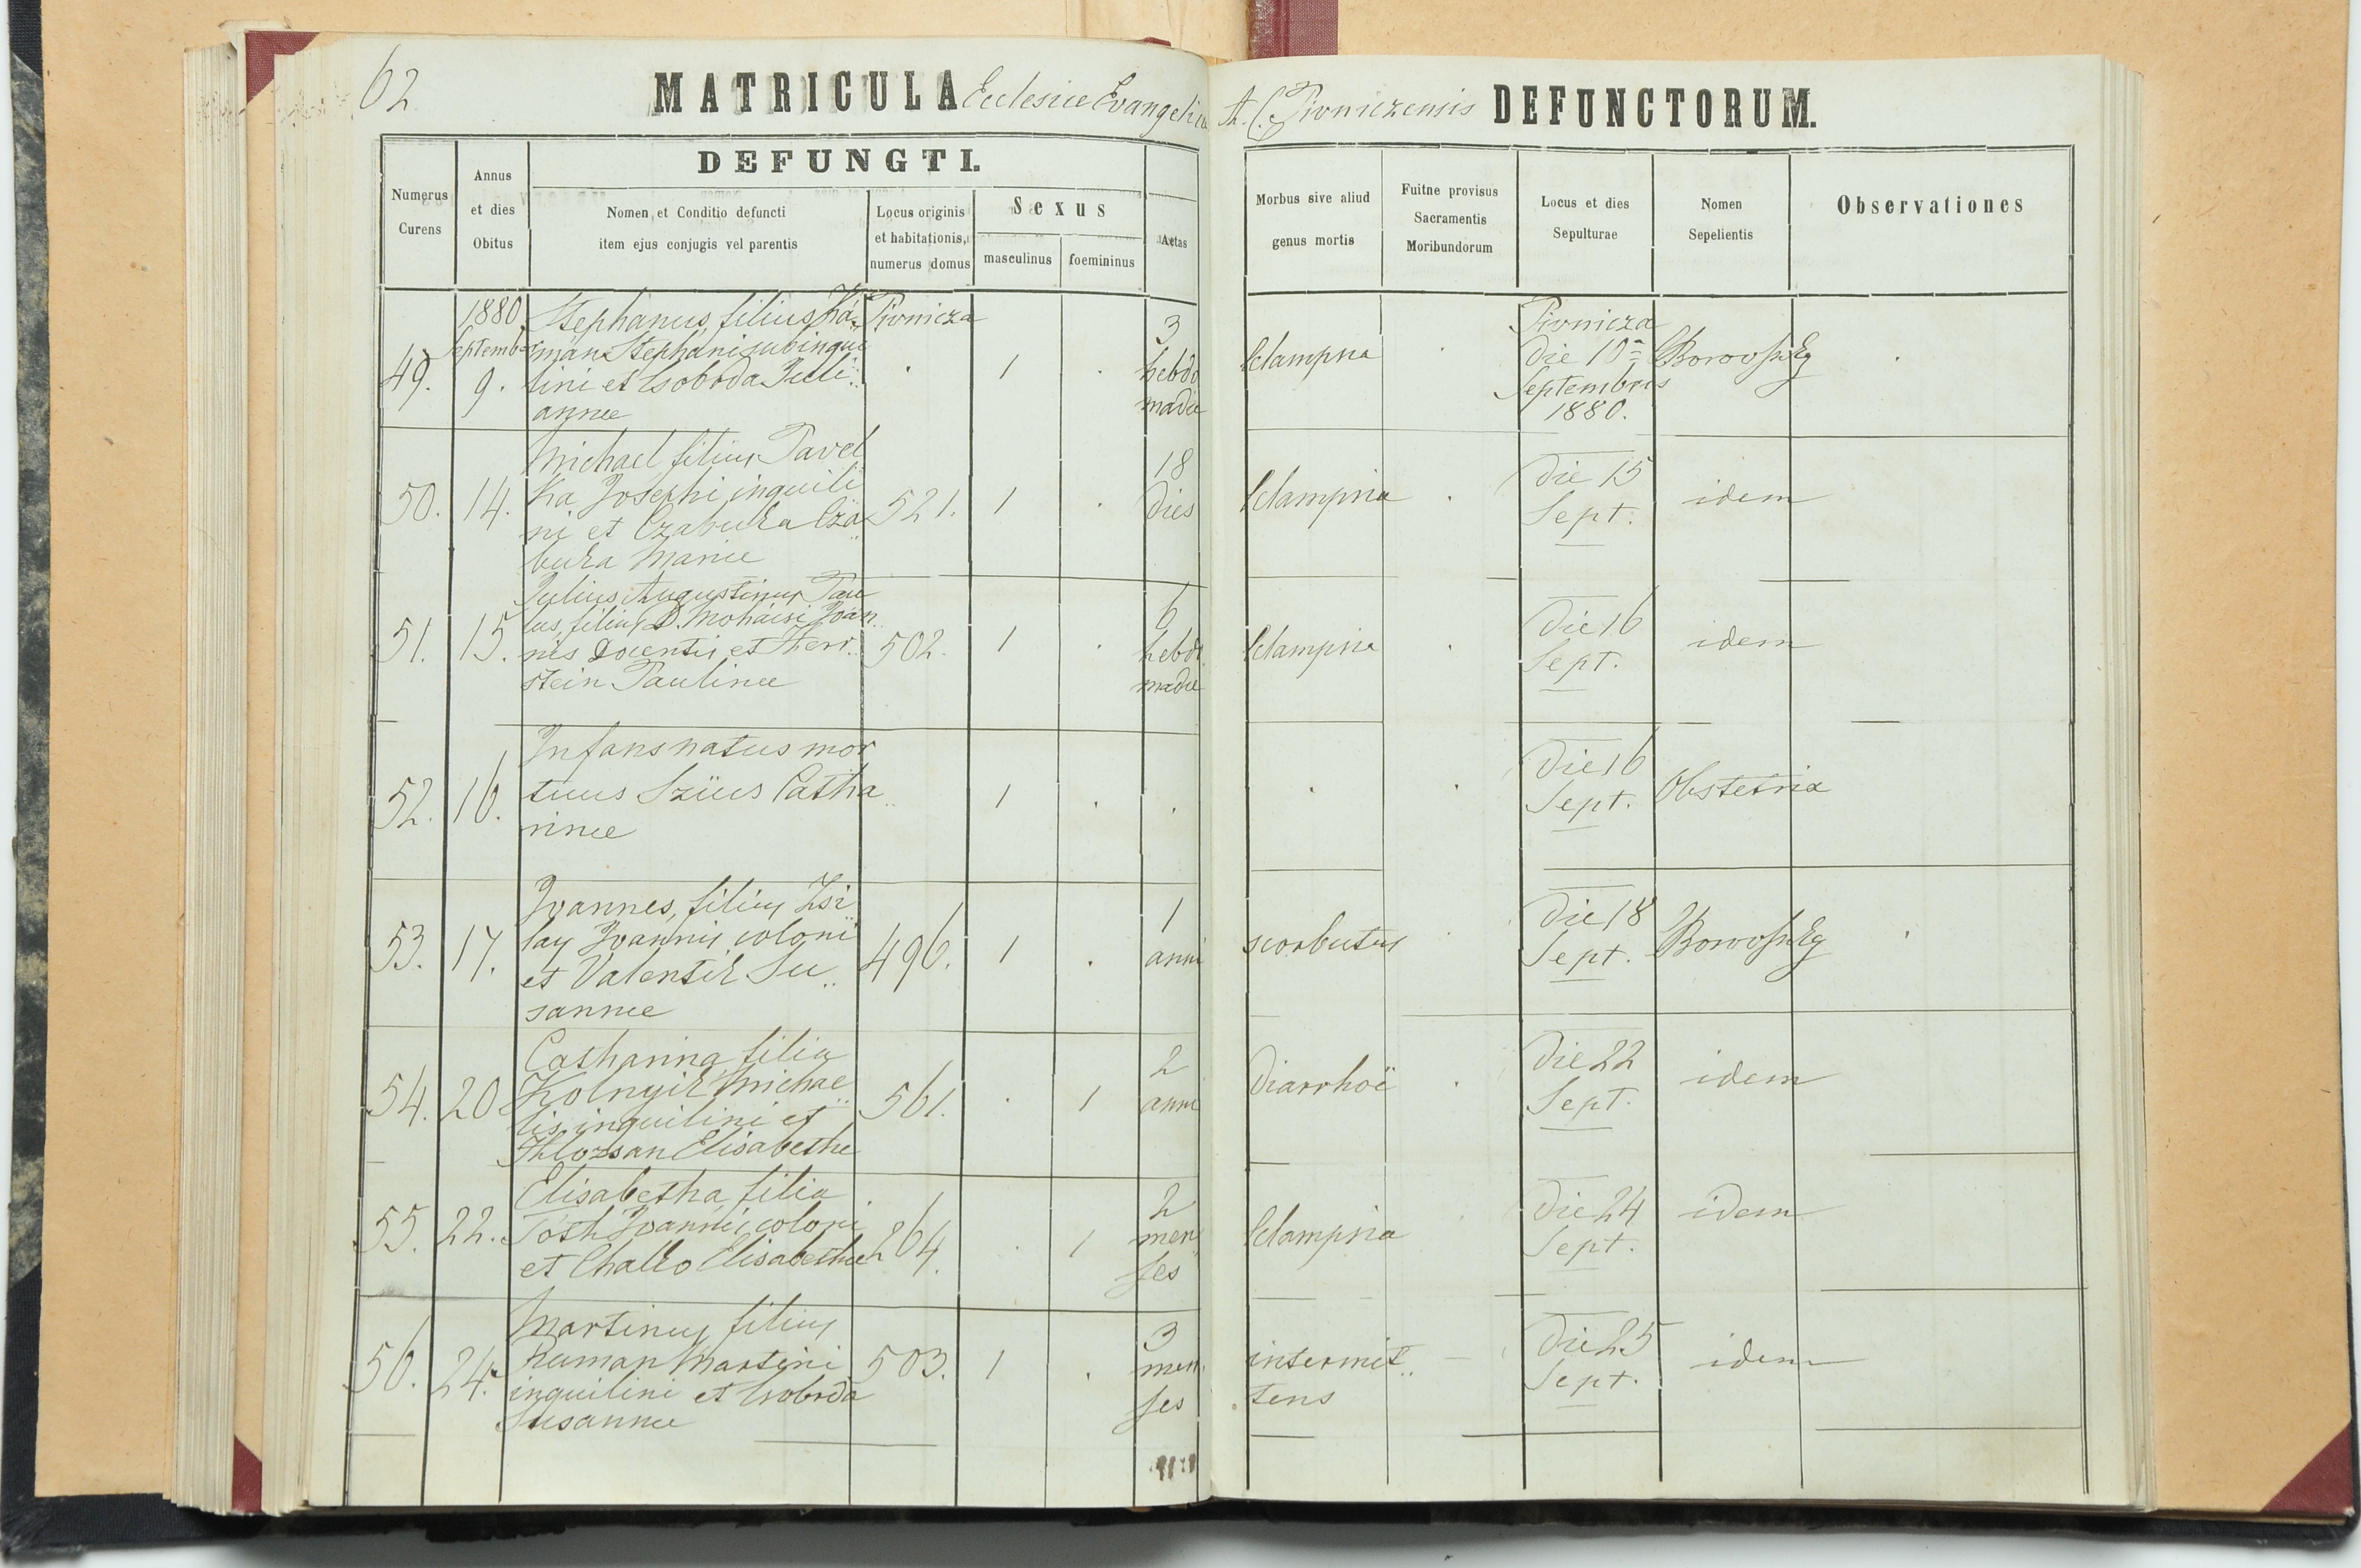 62
MATRICULA Ecclesiae Evangelicae A. C. Pivniczensis DEFUNCTORUM.
DEFUNGTI.
Numerus Curens
Annus et dies Obitus
Nomen et Conditio defuncti item ejus conjugis vel parentis
Locus originis et habitationis, numerus domus
Sexus
masculinus
foemininus
Aetas
Morbus sive aliud genus mortis
Fuitne provisus Sacramentis Moribundorum
Locus et dies Sepulturae
Nomen Sepelientis
Observationes
49.
1880
Septemb.
9.
Stephanus, filius Ká
mán Stephani subinqui
lini et Csoboda Juli
annae
Pivnicza
1
3
hebdo
madae
Eclampsia
Pivnicza
die 10
Septembris
1880.
50.
14.
Michael filius Pavel
ka Josephi inquili
ni et Czabuka Cza
buka Mariae
521.
1
18
dies
Eclampsia
die 15
Sept.
idem
51.
15.
Julius Augustinus Pau
lus, filius D. Moháisi Joan
nis Docentis et
stein Paulinae
502.
1
6
hebdo
madae
Eclampsia
die 16
Sept.
idem
52.
16.
Infans natus mor
tuus Szücs Catha
rinae
1
die 16
Sept.
Obstetrix
53.
17.
Joannes, filius Zsi
lay Joannis coloni
et Valentik Su
sannae
496.
1
1
anni
scorbutus
die 18
Sept.
54.
20
Catharina filia
Kolnyik Michae
lis inquilini et
Elisabethae
561.
1
2
anni
Diarrhoë
die 22
Sept.
idem
55.
22.
Elisabetha filia
Tóth Joannis, coloni
et Chalko Elisabethae
264.
1
2
men
ses
Eclampsia
die 24
Sept.
idem
56.
24.
Martinus filius
Ruman Martini
inquilini et Csoboda
Susannae
503.
1
3
men
ses
intermit
tens
die 25
Sept.
idem